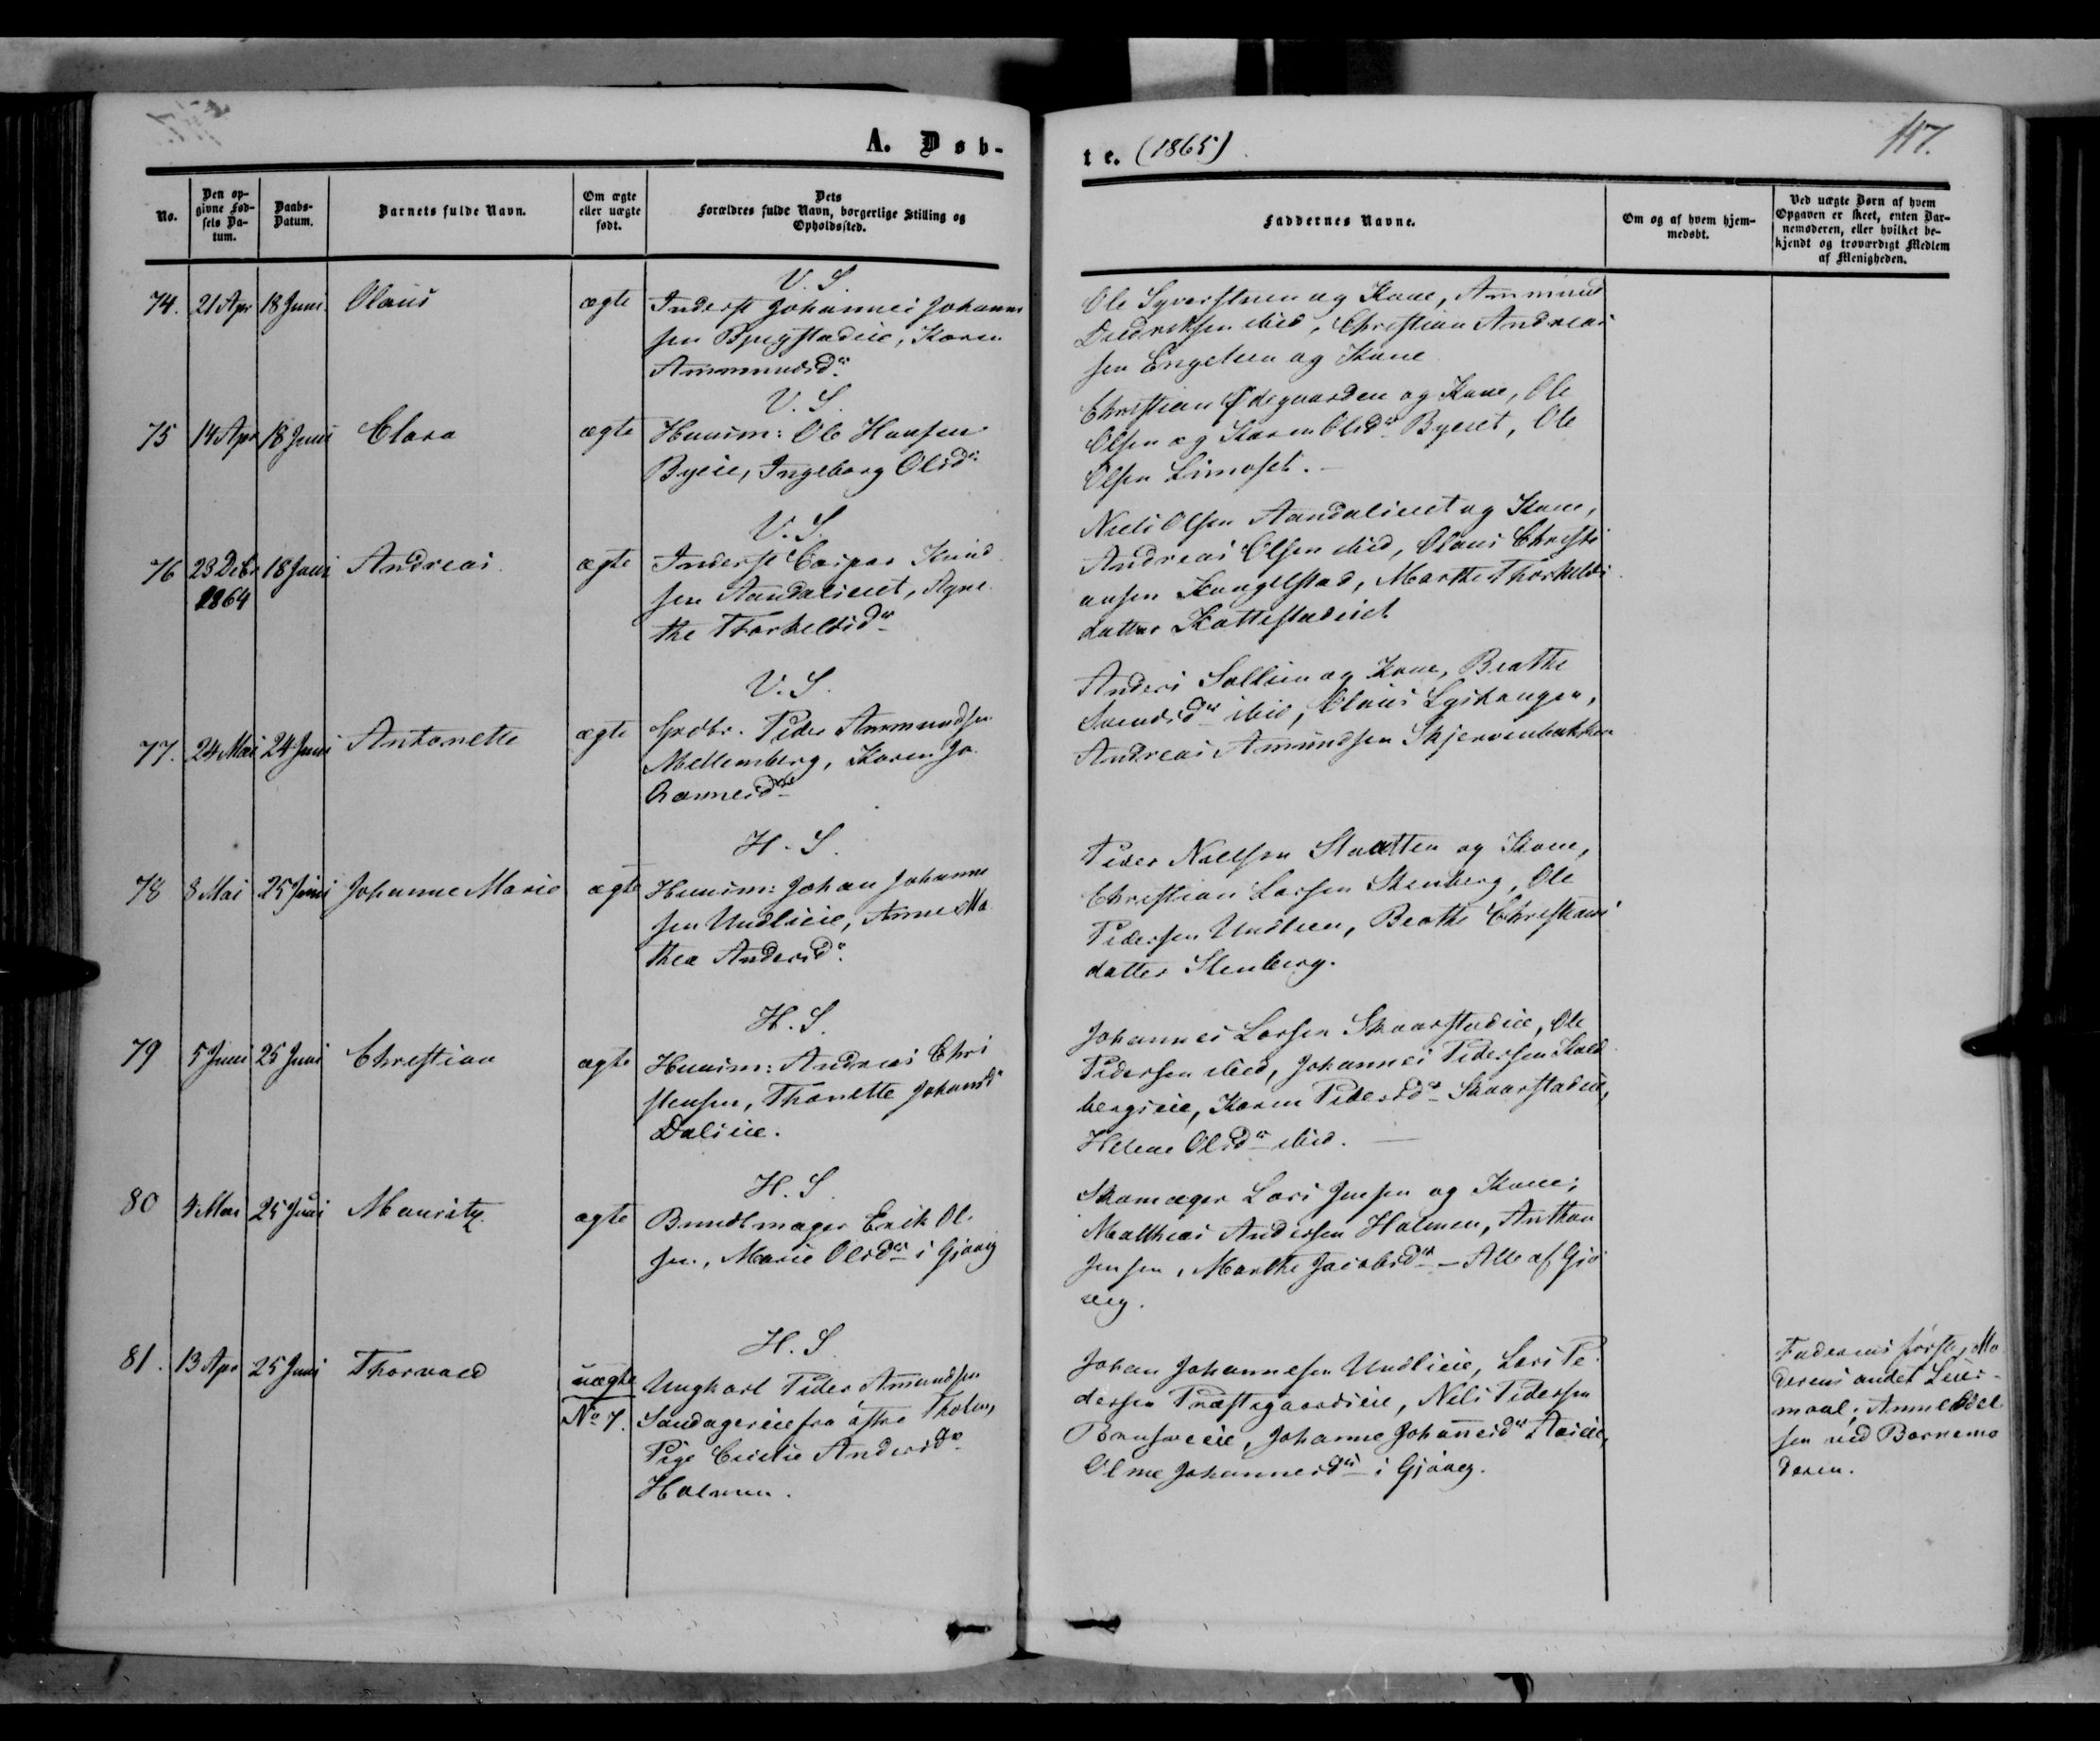 A. Døb-
te. (1865)
117.
No.
Den op-
givne Fød-
sels Da-
tum.
Daabs-
Datum.
Barnets fulde Navn.
Om ægte
eller uægte
født.
Dets
Forældres fulde Navn, borgerlige Stilling og
Opholdssted.
Faddernes Navne.
Om og af hvem hjem-
medøbt.
Ved uægte Børn af hvem
Opgaven er skeet, enten Bar-
nemoderen, eller hvilket be-
kjendt og troværdigt Medlem
af Menigheden.
V. S.
74. 21 Apr 18 Juni. Olaus ægte Inderst Johannes Johanne
sen Karen
Ammundsdr.
Ole Syversteen og Kone, Ammund
Diedriksen ibid, Christian Andreas
sen Engelien og Kone
V. S.
75 14 Apr 18 Juni Clara ægte Huusm: Ole Hansen
Byeie, Ingeborg Olsdr.
Christian Ødegaarden og Kone, Ole
Olsen og Karen Olsdr Byeiet, Ole
Olsen
V. S.
76 23 Debr 18 Juni Andreas ægte Inderst Caspar Knud
1864
sen Aandalseiet, Agne
the Thorkelsdr
Niels Olsen Aandalseiet og Kone,
Andreas Olsen ibid, Olaus Christi
ansen Kongelstad, Marthe Thorkelds
datter
V. S.
77. 24 Mai 24 Juni Antonette ægte Grdbr. Peder Ammundsen
Mellemberg, Karen Jo
hannesdr
Anders Sollien og Kone, Beathe
Svendsdr ibid, Olaus
Andreas Amundsen Skjervenbakken
H. S.
78 8 Mai 25 Juni Johanne Marie ægte Huusm: Johan Johanne
sen Undlieie, Anne Ma
thea Andersdr.
Peder Nielsen Slaatten og Kone,
Christian Larsen Stenberg, Ole
Pedersen Undlien, Beathe Christians
datter Stenberg.
H. S.
79 5 Juni 25 Juni Christian ægte Huusm: Andreas Chri
stensen, Thonette Johansdr
Dalseie.
Johannes Larsen Skaarstadeie, Ole
Pedersen ibid, Johannes Pedersen Kald
bergseie, Karen Pedersdr Skaarstadeie,
Helene Olsdr ibid.
H. S.
80 4 Mai 25 Juni Mauritz. ægte Bundtmager Erik Ol-
sen, Marie Olsdr i Gjøvig
Skomager Lars Jensen og Kone,
Matthias Andersen Holmen, Anthon
Jensen, Marthe Jacobsdr – Alle af Gjø
vig.
H. S.
81. 13 Apr 25 Juni Thorvald uægte Ungkarl Peder Amundsen
No 7. fra østre Thoten,
Pige Cicilie Andersdr
Holmen.
Johan Johannesen Undlieie, Lars Pe
dersen Præstegaardseie, Nils Pedersen
Johanne Johannesdr
Oline Johannesdr i Gjøvig.
Faderens første, Mo
derens andet Leier-
maal; Anmeldel
sen ved Barnemo
deren.